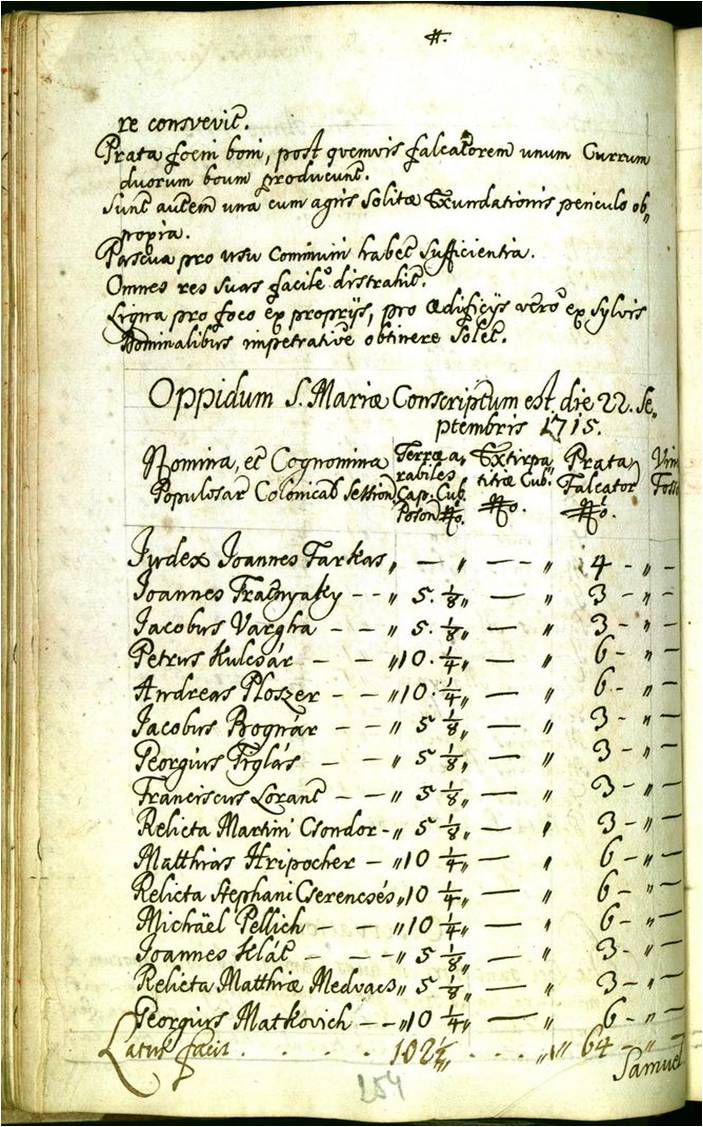 #.
re consvevit.
Prata foeni boni, post qvemvis falcatorem unum Currum
duorum boum producunt.
Sunt autem una cum agris Solitæ Exundationis periculo ob„
noxia.
Pascua pro usu Communi habet Sufficientia.
Omnes res suas facile distrahit.
Ligna pro foco ex proprijs, pro Ædificijs verò ex Sylvis
Dominalibus impetrative obtinere Solet.
Oppidum S. Mariæ Conscriptum est die 22. Se„
ptembris 1715.
Nomina, et Cognomina Terræ a„ Extirpa„ Prata Vin
Populosar Colonical Session rabiles titiæ Cub. Falcator Foss
Cap. Cub.
Poson No. No. No.
Judex Joannes Farkas „ — „ — — „ 4 - „ -
Joannes - - „ 5. 1/8 „ — „ 3 - „ -
Jacobus Vargha - - „ 5. 1/8 „ — „ 3 - „ -
Petrus Kulcsár - - „ 10. 1/4 „ — „ 6 - „ -
Andreas Ploszer - - „ 10. 1/4 „ — „ 6 - „ -
Jacobus Bognár - - „ 5 1/8 „ — „ 3 - „ -
Georgius Figlás - - „ 5 1/8 „ — „ 3 - „ -
Franciscus Lorant - - „ 5 1/8 „ — „ 3 - „ -
Relicta Martini Csondor - „ 5 1/8 „ — „ 3 - „ -
Matthias Hripocher - „ 10 1/4 „ — „ 6 - „ -
Relicta Stephani Cserencsés „ 10 1/4 „ — „ 6 - „ -
Michäel Pellich - - „ 10 1/4 „ — „ 6 - „ -
Joannes Klát - - - „ 5 1/8 „ — „ 3 - „ -
Relicta Matthiæ Medvacs „ 5 1/8 „ — „ 3 - „ -
Georgius Matkovich - - „ 10 1/4 „ — „ 6 - „ -
Latus facit . . . . . 102 1/2 „ . . . „ „ 64 - „ -
Samuel
254